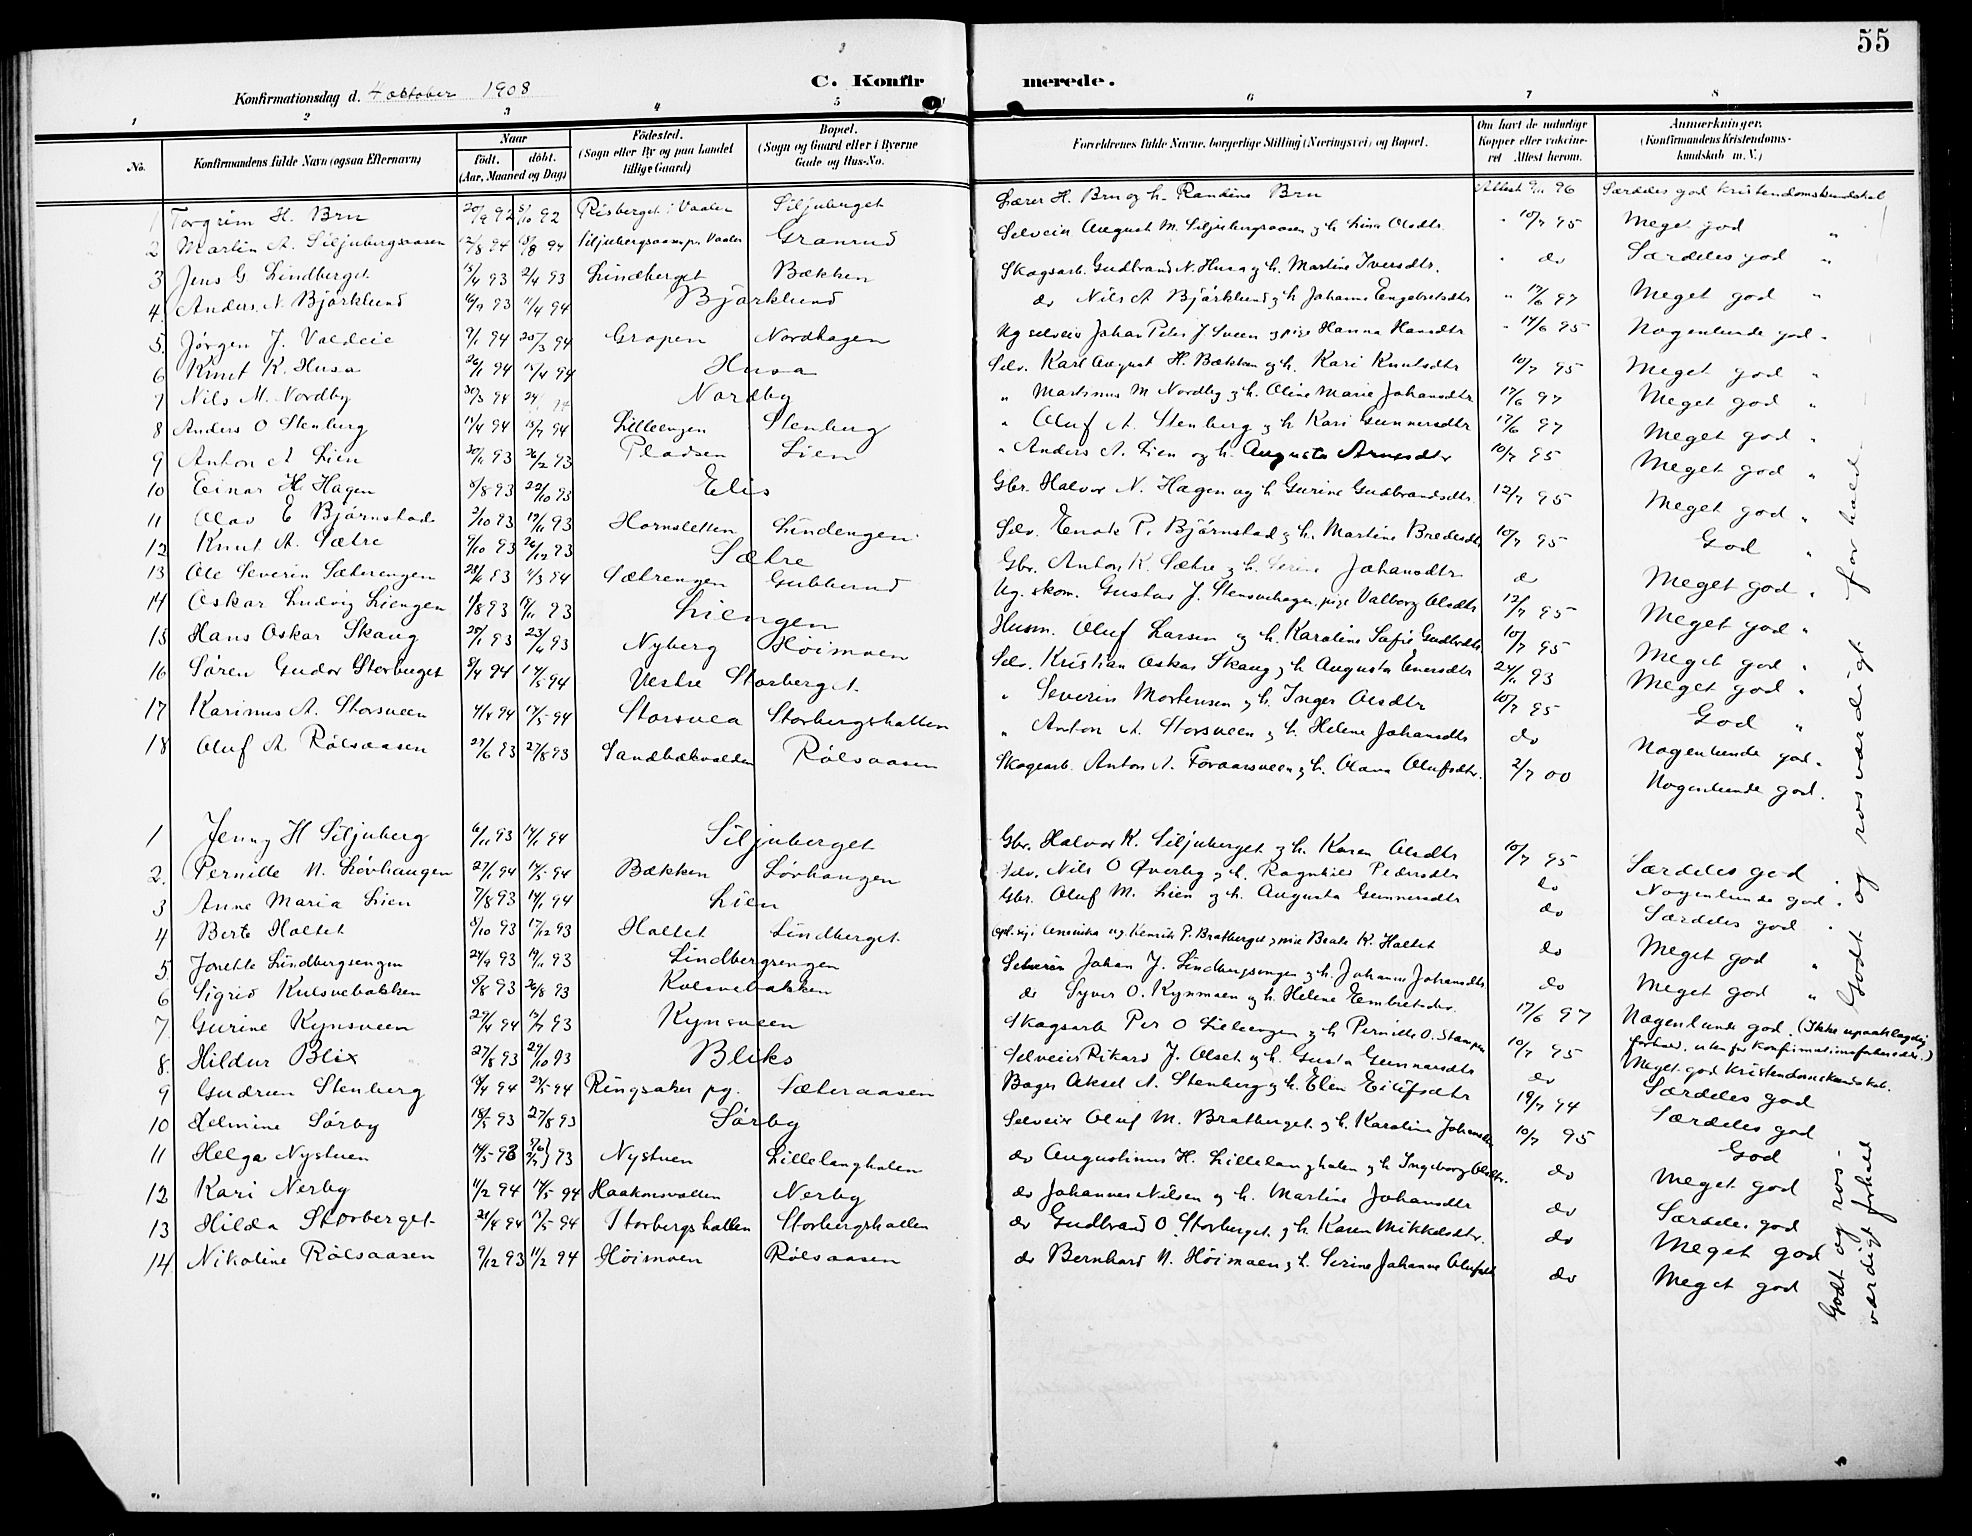 55
C. Konfirmerede.
Konfirmationsdag d. 4 oktober 1908
1 2 3 4 5 6 7 8
No. Konfirmandens fulde Navn (ogsaa Efternavn) Naar født. døbt. (Aar, Maaned og Dag) Fødested. (Sogn eller By og paa Landet tillige Gaard) Bopæl. (Sogn og Gaard eller i Byerne Gade og Hus-No. Forældrenes fulde Navne, borgerlige Stilling (Næringsvei) og Bopæl. Om havt de naturlige Kopper eller vaccineret Attest herom. Anmærkninger. (Konfirmandens Kristendomskundskab m. V.)
1 Torgrim H. Bru 20/9 92 5/10 92 Risberget i Vaaler Siljuberget Lærer H. Bru og h. Randine Bru Attest 9/11 96 Særdeles god Kristendomskundskab
2 Martin A. Siljubergsaasen 12/3 94 Siljubergsaasen, Vaaler Granrud Selveier August M. Siljubergsaasen og h. Lina Olsdtr. " 10/7 95 Meget god "
3 Jens G Lindberget 15/4 93 2/4 93 Lindberget Bækken Skogsarb. Gudbrand N. Husa og h. Martine Iversdtr. " do Særdeles god "
4. Anders N. Bjørklund 16/9 93 11/4 94 Bjørklund do Nils A Bjørklund og h. Johanne Engebretsdtr " 17/6 97 Meget god "
5. Jørgen J. Valdeie 9/1 94 25/3 94 Grapen Nordhagen Ug selveier Johan Peter J Sveen og pige Hanna Hansdtr " 14/6 95 Nogenlunde god "
6 Knut K. Husa 26/1 94 15/4 94 Husa Selv. Karl August H. Bækken og h. Kari Knutsdtr 10/7 95 Meget god "
7 Nils M. Nordby 30/3 94 Nordby " Martinus M Nordby og h. Oline Marie Johansdtr 17/6 97 Meget god "
8 Anders O Stenberg 17/4 94 15/7 94 Lilleengen Stenberg " Oluf A. Stenberg og h. Kari Gunnersdtr 17/6 97 Meget god "
9 Anton A Lien 30/11 93 26/12 93 Pladsen Lien " Anders A. Lien og h. Augusta Arnesdtr 10/7 95 Meget god "
10 Einar H. Hagen 5/8 93 22/10 93 Elis Gbr. Halvor N. Hagen og h Gurine Gudbrandsdtr. 12/7 95 Meget god "
11 Olav E Bjørnstad 2/10 93 19/11 93 Hornsletten Lindengen Selv. Enok P. Bjørnstad og h. Martine Bredesdtr 10/7 95 God "
12 Knut A. Sætre 9/10 93 26/12 93 Sætre Gbr. Anton K. Sætre og h. Serine Johansdtr do Meget god "
13 Ole Severin Sæterengen 25/11 93 11/3 94 Sætrengen Gubberud Ug. skom. Gustav J. Stensvehagen, pige Valborg Olsdtr 12/7 95 Meget god "
14 Oskar Ludvig Liengen 1/8 93 19/11 93 Liengen Husm. Oluf Larsen og h. Karoline Sofie Gudbrdtr 10/7 95 Meget god "
15 Hans Oskar Skaug 25/1 93 23/4 93 Nyberg Høimoen Selv. Kristian Oskar Skaug og h. Augusta Evensdtr 24/11 93 Meget god "
16 Søren Gudor Storberget 8/4 94 14/5 94 Vestre Storberget " Severin Mortensen og h. Inger Olsdtr 10/7 95 God "
17 Karinus A. Storsveen 4/4 94 14/5 94 Storsvea Storbergshallen " Anton A. Storsveen og h. Helene Johansdtr do Nogenlunde god "
18 Oluf A Rölsaasen 27/6 93 27/8 93 Sandbækvolden Rölsaasen Skogsarb. Anton A. Foraarsveen og h. Olava Olufsdtr. 2/7 00 Nogenlunde god.
Godt og rosværdigt forhold
1 Jenny H Siljuberg 6/11 93 14/1 94 Siljuberget Gbr. Halvor K. Siljuberget og h. Karen Olsdtr 10/7 95 Særdeles god
2. Pernille N. Løvhaugen 27/1 94 14/5 94 Bækken Løvhaugen Selv. Nils O Øverby og h. Ragnhild Pedersdtr do Nogenlunde god "
3 Anne Maria Lien 7/8 93 14/1 94 Lien Gbr. Oluf M. Lien og h. Augusta Gunnersdtr do Særdeles god "
4 Berte Haltet 8/10 93 17/12 93 Haltet Lindberget Oph. sig i Amerika ug. Henrik P. Bratberget og pige Beate K. Haltet do Meget god "
5 Jonette Lindbergsengen 24/9 93 19/11 93 Lindbergsengen Selveier Johan J. Lindbergsengen og h. Johanne Johansdtr do Meget god "
6 Sigrid Kulsvebakken 5/8 93 26/8 93 Kolsvebakken do Syver O. Kynmoen og h. Helene Embretsdtr. 17/6 97 Nogenlunde god. (Ikke upaaklagelig forhold, uten for konfirmationsforberedels.)
7. Gurine Kynsveen 29/4 94 15/7 93 Kynsveen Skogsarb Per O Lilleengen og h. Pernille O. Stampen 10/7 95 Meget god Kristendomskundskab.
8. Hildur Blix 27/8 93 29/10 93 Bliks Selveier Rikard J. Olset og h. Gusta Gunnarsdtr do Særdeles god
9 Gudrun Stenberg 18/4 94 27/5 94 Ringsaker pg. Sæteraasen Bager Aksel A. Stenberg og h. Elen Eilifsdtr 19/7 94 Særdeles god
10 Helmine Sørby 18/5 93 27/8 93 Sørby Selveier Oluf M. Bratberget og h. Karoline Johansdtr 10/7 95 God
11 Helga Nystuen 14/5 93 93 Nystuen Lillelanghalen do Augustinus H. Lillelanghalen og h Ingeborg Olsdtr. do Meget god
12 Kari Nerby 11/2 94 14/5 94 Haakonsvolten Nerby do Johannes Nilsen og h. Martine Johansdtr do Særdeles god
13 Hilda Storberget 21/4 94 14/5 94 Storbergshallen Storbergshallen do Gudbrand O. Storberget og h. Karen Mikkelsdtr. do Meget god
14. Nikoline Rölsaasen 9/12 93 11/2 94 Høimoen Rölsaasen do Bernhard N. Høimoen og h. Serine Johanne Olufsdtr do Meget god
Godt og rosværdigt forhold